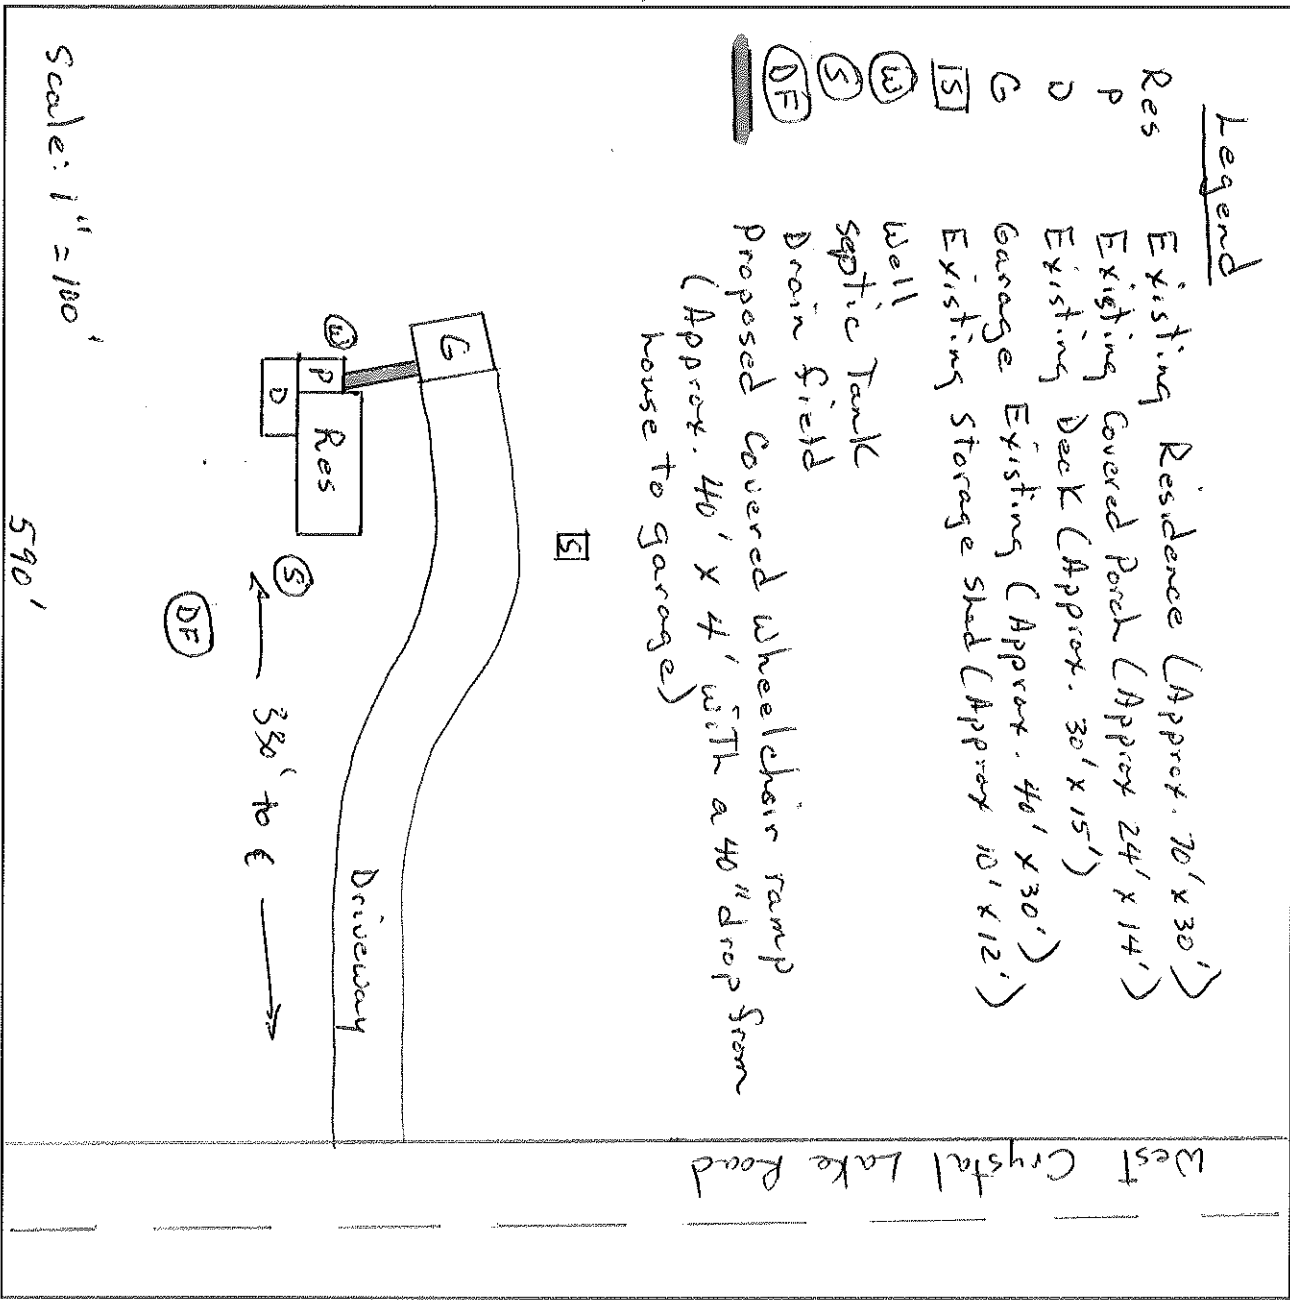 Legend
Res Existing Residence (Approx. 70' x 30')
P Existing Covered Porch (Approx 24' x 14')
D Existing Deck (Approx. 30' x 15')
G Garage Existing (Approx. 40' x 30')
S Existing Storage Shed (Approx 10' x 12')
W Well
S Septic Tank
DF Drain field
Proposed Covered wheelchair ramp
(Approx. 40' x 4' with a 40" drop from
house to garage)
West Crystal Lake Road
S
G
W
P
D
Res
S
DF
Driveway
330' to ℄
590'
Scale: 1" = 100'